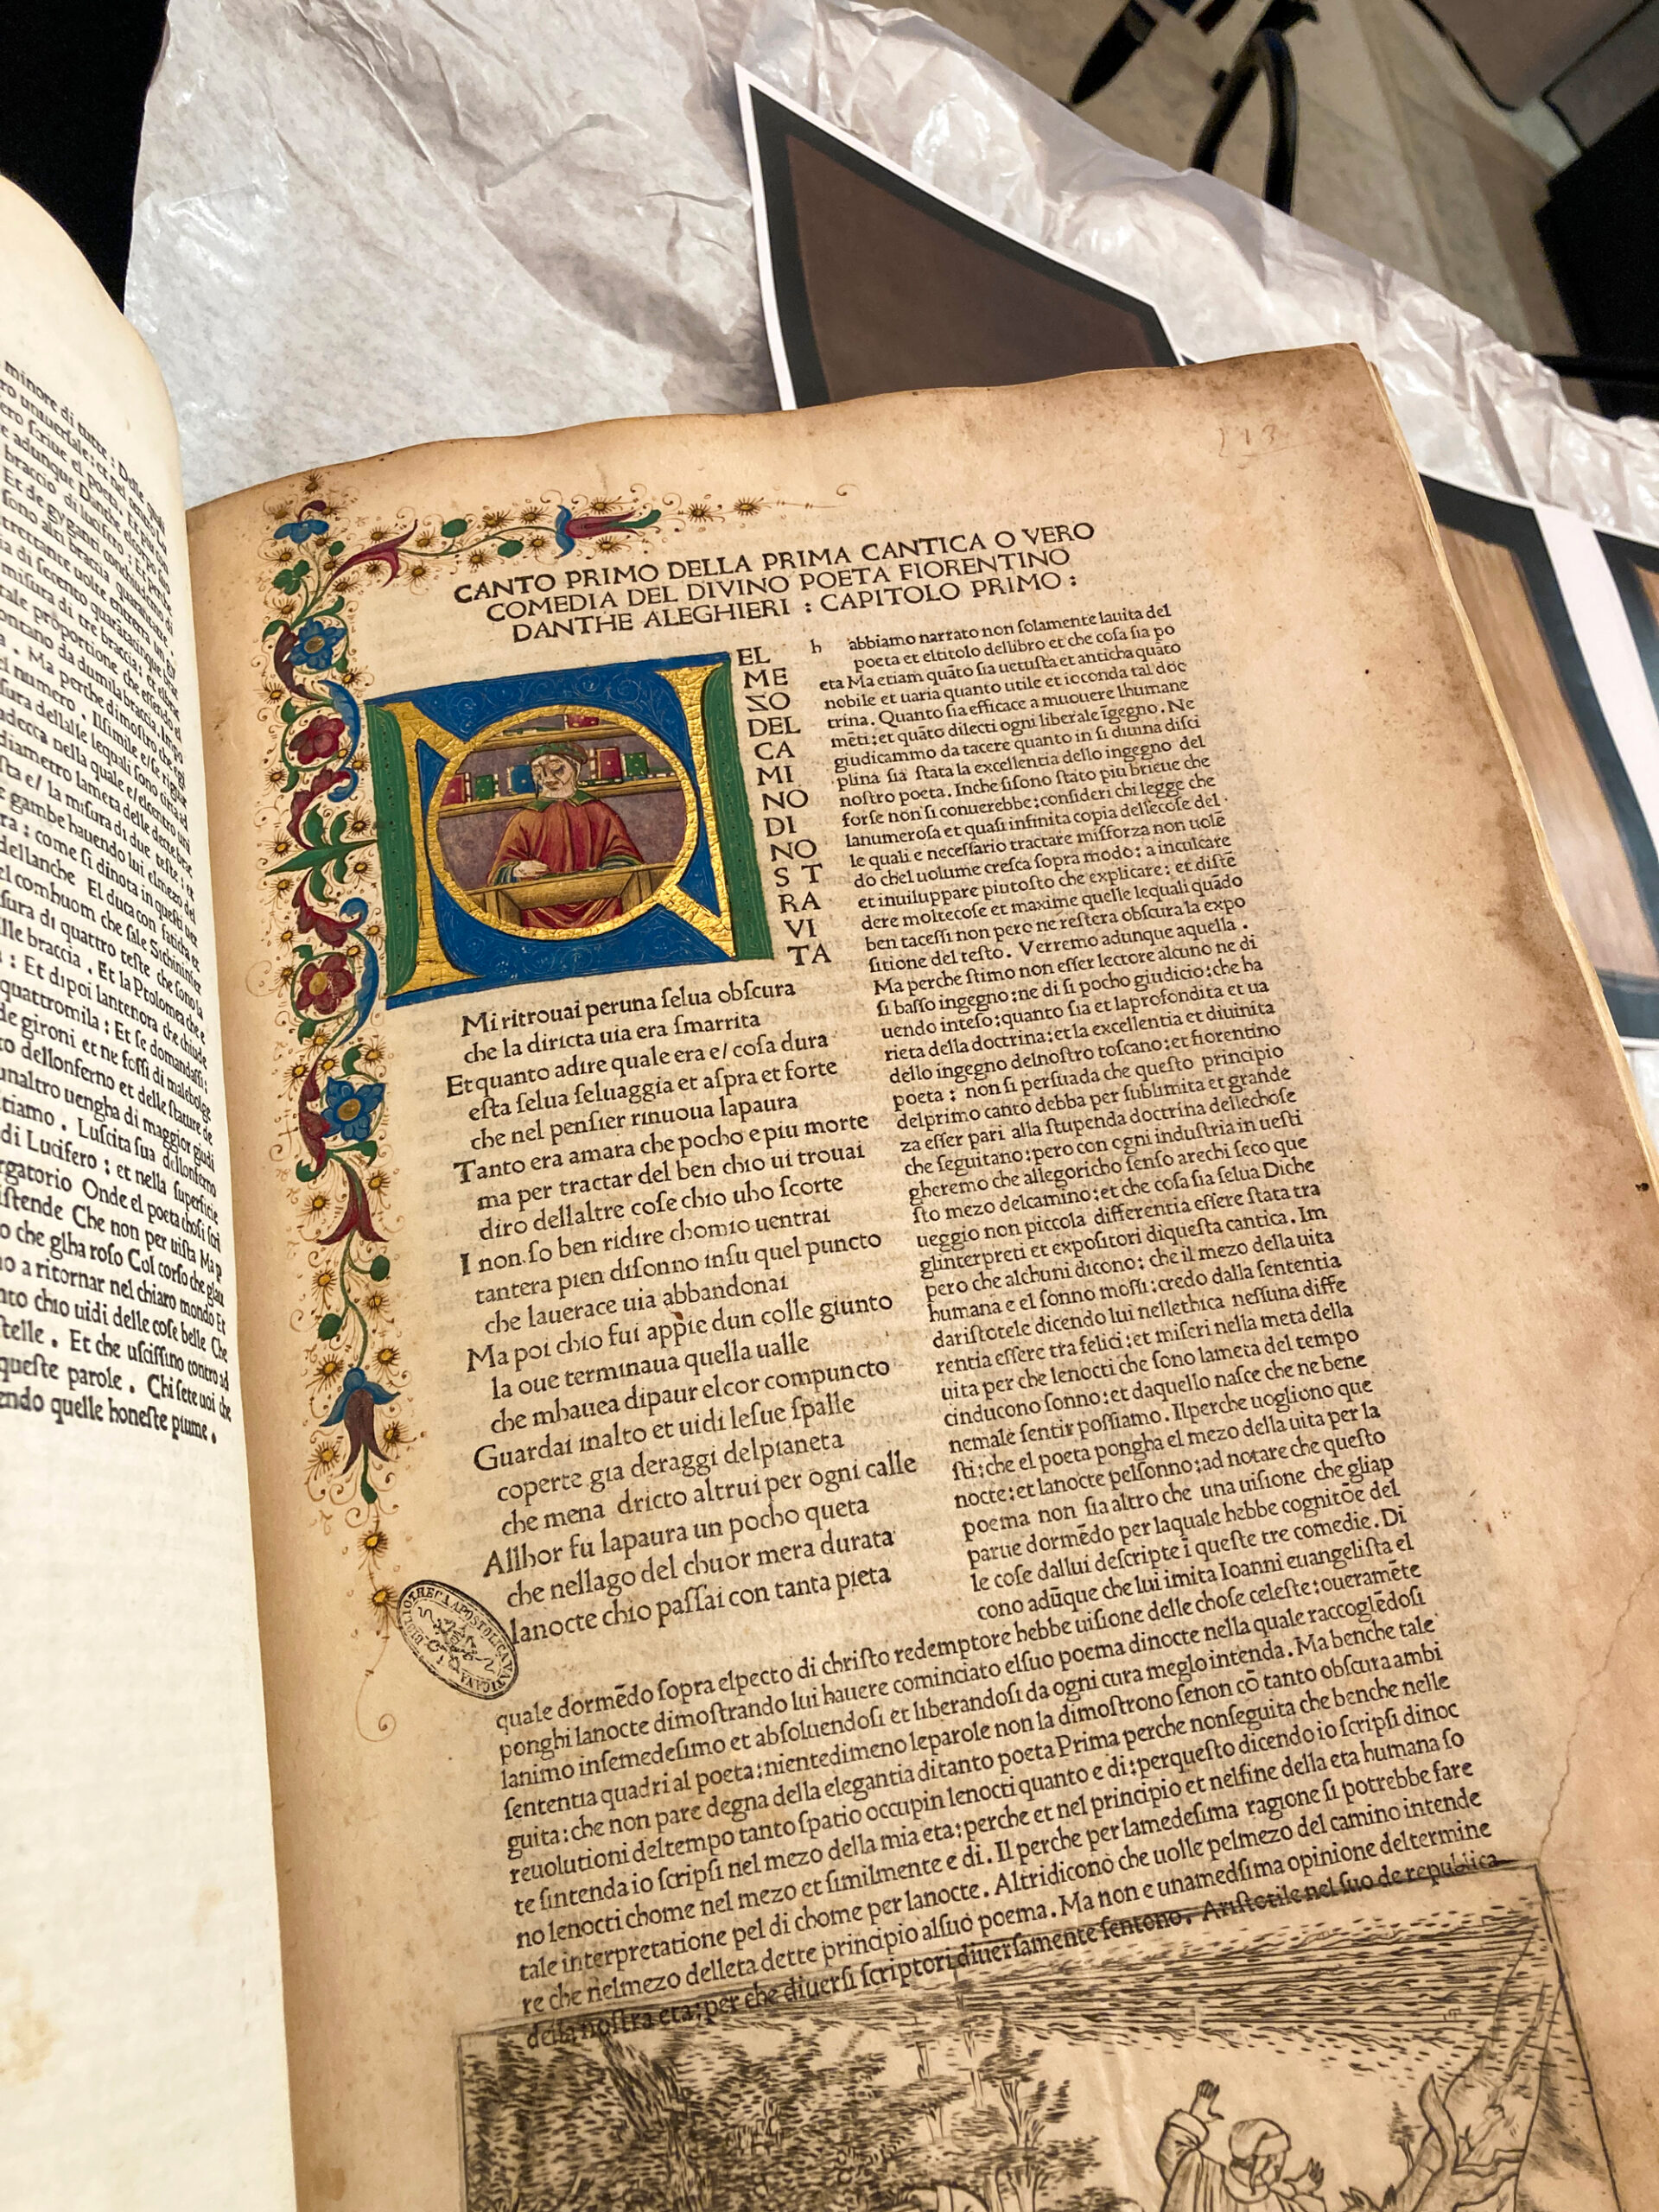 minore di tutte : Delle quali
Et de gyganti
ſono alti braccia
di ſecento
miſura di tre braccia
Ma perche dimoſtro che
numero . Ilſimile e/ſe
nella quale e/elcentro
diametro lameta delle dette
e/ la miſura di due teſte : et
gambe hauendo lui elmezo del
: come ſi dinota in queſti uer
dellanche El duca con faticha et
com huom che ſale
ſura di quattro teſte che ſono la
braccia . Et la Ptolomea che e
: Et dipoi lantenora che chiude
quattromila : Et ſe domandaſſi
de gironi et ne foſſi di malebolge
dellonferno et delle ſtature de
unaltro uengha di maggior giudi
tiamo . Luſcita ſua dellonferno
di Lucifero : et nella ſuperficie
rgatorio Onde el poeta choſi ſcri
iſtende Che non per uiſta Ma p
che glha roſo Col corſo che
a ritornar nel chiaro mondo Et
chio uidi delle coſe belle Che
ſtelle . Et che uſciſſino contro ad
queſte parole . Chi ſete uoi che
endo quelle honeſte piume .
113
CANTO PRIMO DELLA PRIMA CANTICA O VERO
COMEDIA DEL DIVINO POETA FIORENTINO
DANTHE ALEGHIERI : CAPITOLO PRIMO :
N
EL
ME
ZO
DEL
CA
MI
NO
DI
NO
S T
RA
VI
TA
Mi ritrouai peruna ſelua obſcura
che la diricta uia era ſmarrita
Et quanto adire quale era e/ coſa dura
eſta ſelua ſeluaggia et aſpra et forte
che nel penſier rinuoua lapaura
Tanto era amara che pocho e piu morte
ma per tractar del ben chio ui trouai
diro dellaltre coſe chio uho ſcorte
I non ſo ben ridire chomio uentrai
tantera pien diſonno inſu quel puncto
che lauerace uia abbandonai
Ma poi chio fui appie dun colle giunto
la oue terminaua quella ualle
che mhauea dipaur elcor compuncto
Guardai inalto et uidi leſue ſpalle
coperte gia deraggi delpianeta
che mena dricto altrui per ogni calle
Allhor fu lapaura un pocho queta
che nellago del chuor mera durata
lanocte chio paſſai con tanta pieta
h abbiamo narrato non ſolamente lauita del
poeta et eltitolo dellibro et che coſa ſia po
eta Ma etiam quãto ſia uetuſta et anticha quãto
nobile et uaria quanto utile et ioconda tal doc
trina. Quanto ſia efficace a muouere lhumane
mẽti: et quãto dilecti ogni liberale ĩgegno. Ne
giudicammo da tacere quanto in ſi diuina diſci
plina ſia ſtata la excellentia dello ingegno del
noſtro poeta. Inche ſiſono ſtato piu brieue che
forſe non ſi conuerebbe: conſideri chi legge che
lanumeroſa et quaſi infinita copia dellecoſe del
le quali e neceſſario tractare miſforza non uolẽ
do chel uolume creſca ſopra modo: a inculcare
et inuiluppare piutoſto che explicare: et diſtẽ
dere moltecoſe et maxime quelle lequali quãdo
ben taceſſi non pero ne reſtera obſcura la expo
ſitione del teſto. Verremo adunque aquella .
Ma perche ſtimo non eſſer lectore alcuno ne di
ſi baſſo ingegno: ne di ſi pocho giudicio: che ha
uendo inteſo: quanto ſia et laprofondita et ua
rieta della doctrina: et la excellentia et diuinita
dello ingegno delnoſtro toſcano: et fiorentino
poeta : non ſi perſuada che queſto principio
delprimo canto debba per ſublimita et grande
za eſſer pari alla ſtupenda doctrina dellechoſe
che ſeguitano: pero con ogni induſtria in ueſti
gheremo che allegoricho ſenſo arechi ſeco que
ſto mezo delcamino: et che coſa ſia ſelua Diche
ueggio non piccola differentia eſſere ſtata tra
glinterpreti et expoſitori diqueſta cantica. Im
pero che alchuni dicono: che il mezo della uita
humana e el ſonno moſſi: credo dalla ſententia
dariſtotele dicendo lui nellethica neſſuna diffe
rentia eſſere tra felici: et miſeri nella meta della
uita per che lenocti che ſono lameta del tempo
cinducono ſonno: et daquello naſce che ne bene
nemale ſentir poſſiamo. Ilperche uogliono que
ſti: che el poeta pongha el mezo della uita per la
nocte: et lanocte pelſonno: ad notare che queſto
poema non ſia altro che una uiſione che gliap
parue dormẽdo per laquale hebbe cognitõe del
le coſe dallui deſcripte ĩ queſte tre comedie. Di
cono adũque che lui imita Ioanni euangeliſta el
quale dormẽdo ſopra elpecto di chriſto redemptore hebbe uiſione delle choſe celeſte: oueramẽte
ponghi lanocte dimoſtrando lui hauere cominciato elſuo poema dinocte nella quale raccoglẽdoſi
lanimo inſemedeſimo et abſoluendoſi et liberandoſi da ogni cura meglo intenda. Ma benche tale
ſententia quadri al poeta: nientedimeno leparole non la dimoſtrono ſenon cõ tanto obſcura ambi
guita: che non pare degna della elegantia ditanto poeta Prima perche nonſeguita che benche nelle
reuolutioni deltempo tanto ſpatio occupin lenocti quanto e di: perqueſto dicendo io ſcripſi dinoc
te ſintenda io ſcripſi nel mezo della mia eta: perche et nel principio et nelfine della eta humana ſo
no lenocti chome nel mezo et ſimilmente e di. Il perche per lamedeſima ragione ſi potrebbe fare
tale interpretatione pel di chome per lanocte. Altri dicono che uolle pelmezo del camino intende
re che nelmezo delleta dette principio alſuo poema. Ma non e unamedſima opinione deltermine
della noſtra eta: per che diuerſi ſcriptori diuerſamente ſentono. Ariſtotile nel ſuo de republica
BIBLIOTHECA APOSTOLICA VATICANA